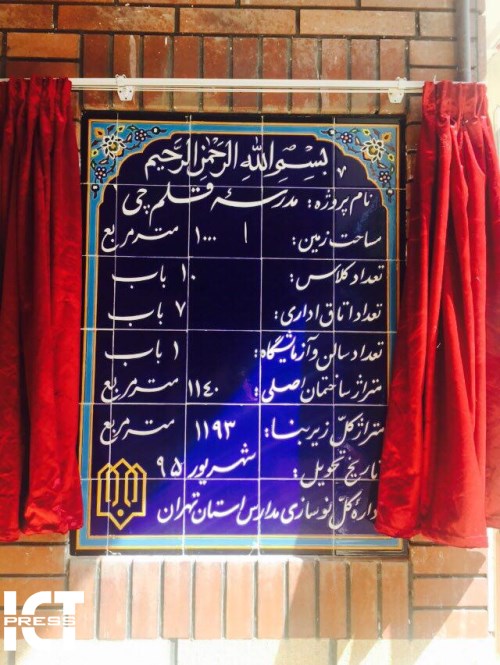 بسم الله الرحمن الرحیم
نام پروژه: مدرسه قلم چی
مساحت زمین: ۱۰۰۰ مترمربع
تعداد کلاس: ۱۰ باب
تعداد اتاق اداری: ۷ باب
تعداد سالن و آزمایشگاه: ۱ باب
متراژ ساختمان اصلی: ۱۱۴۰ مترمربع
متراژ کل زیربنا: ۱۱۹۳ مترمربع
تاریخ تحویل: شهریور ۹۵
داره کل نوسازی مدارس استان تهران
ICT
PRESS